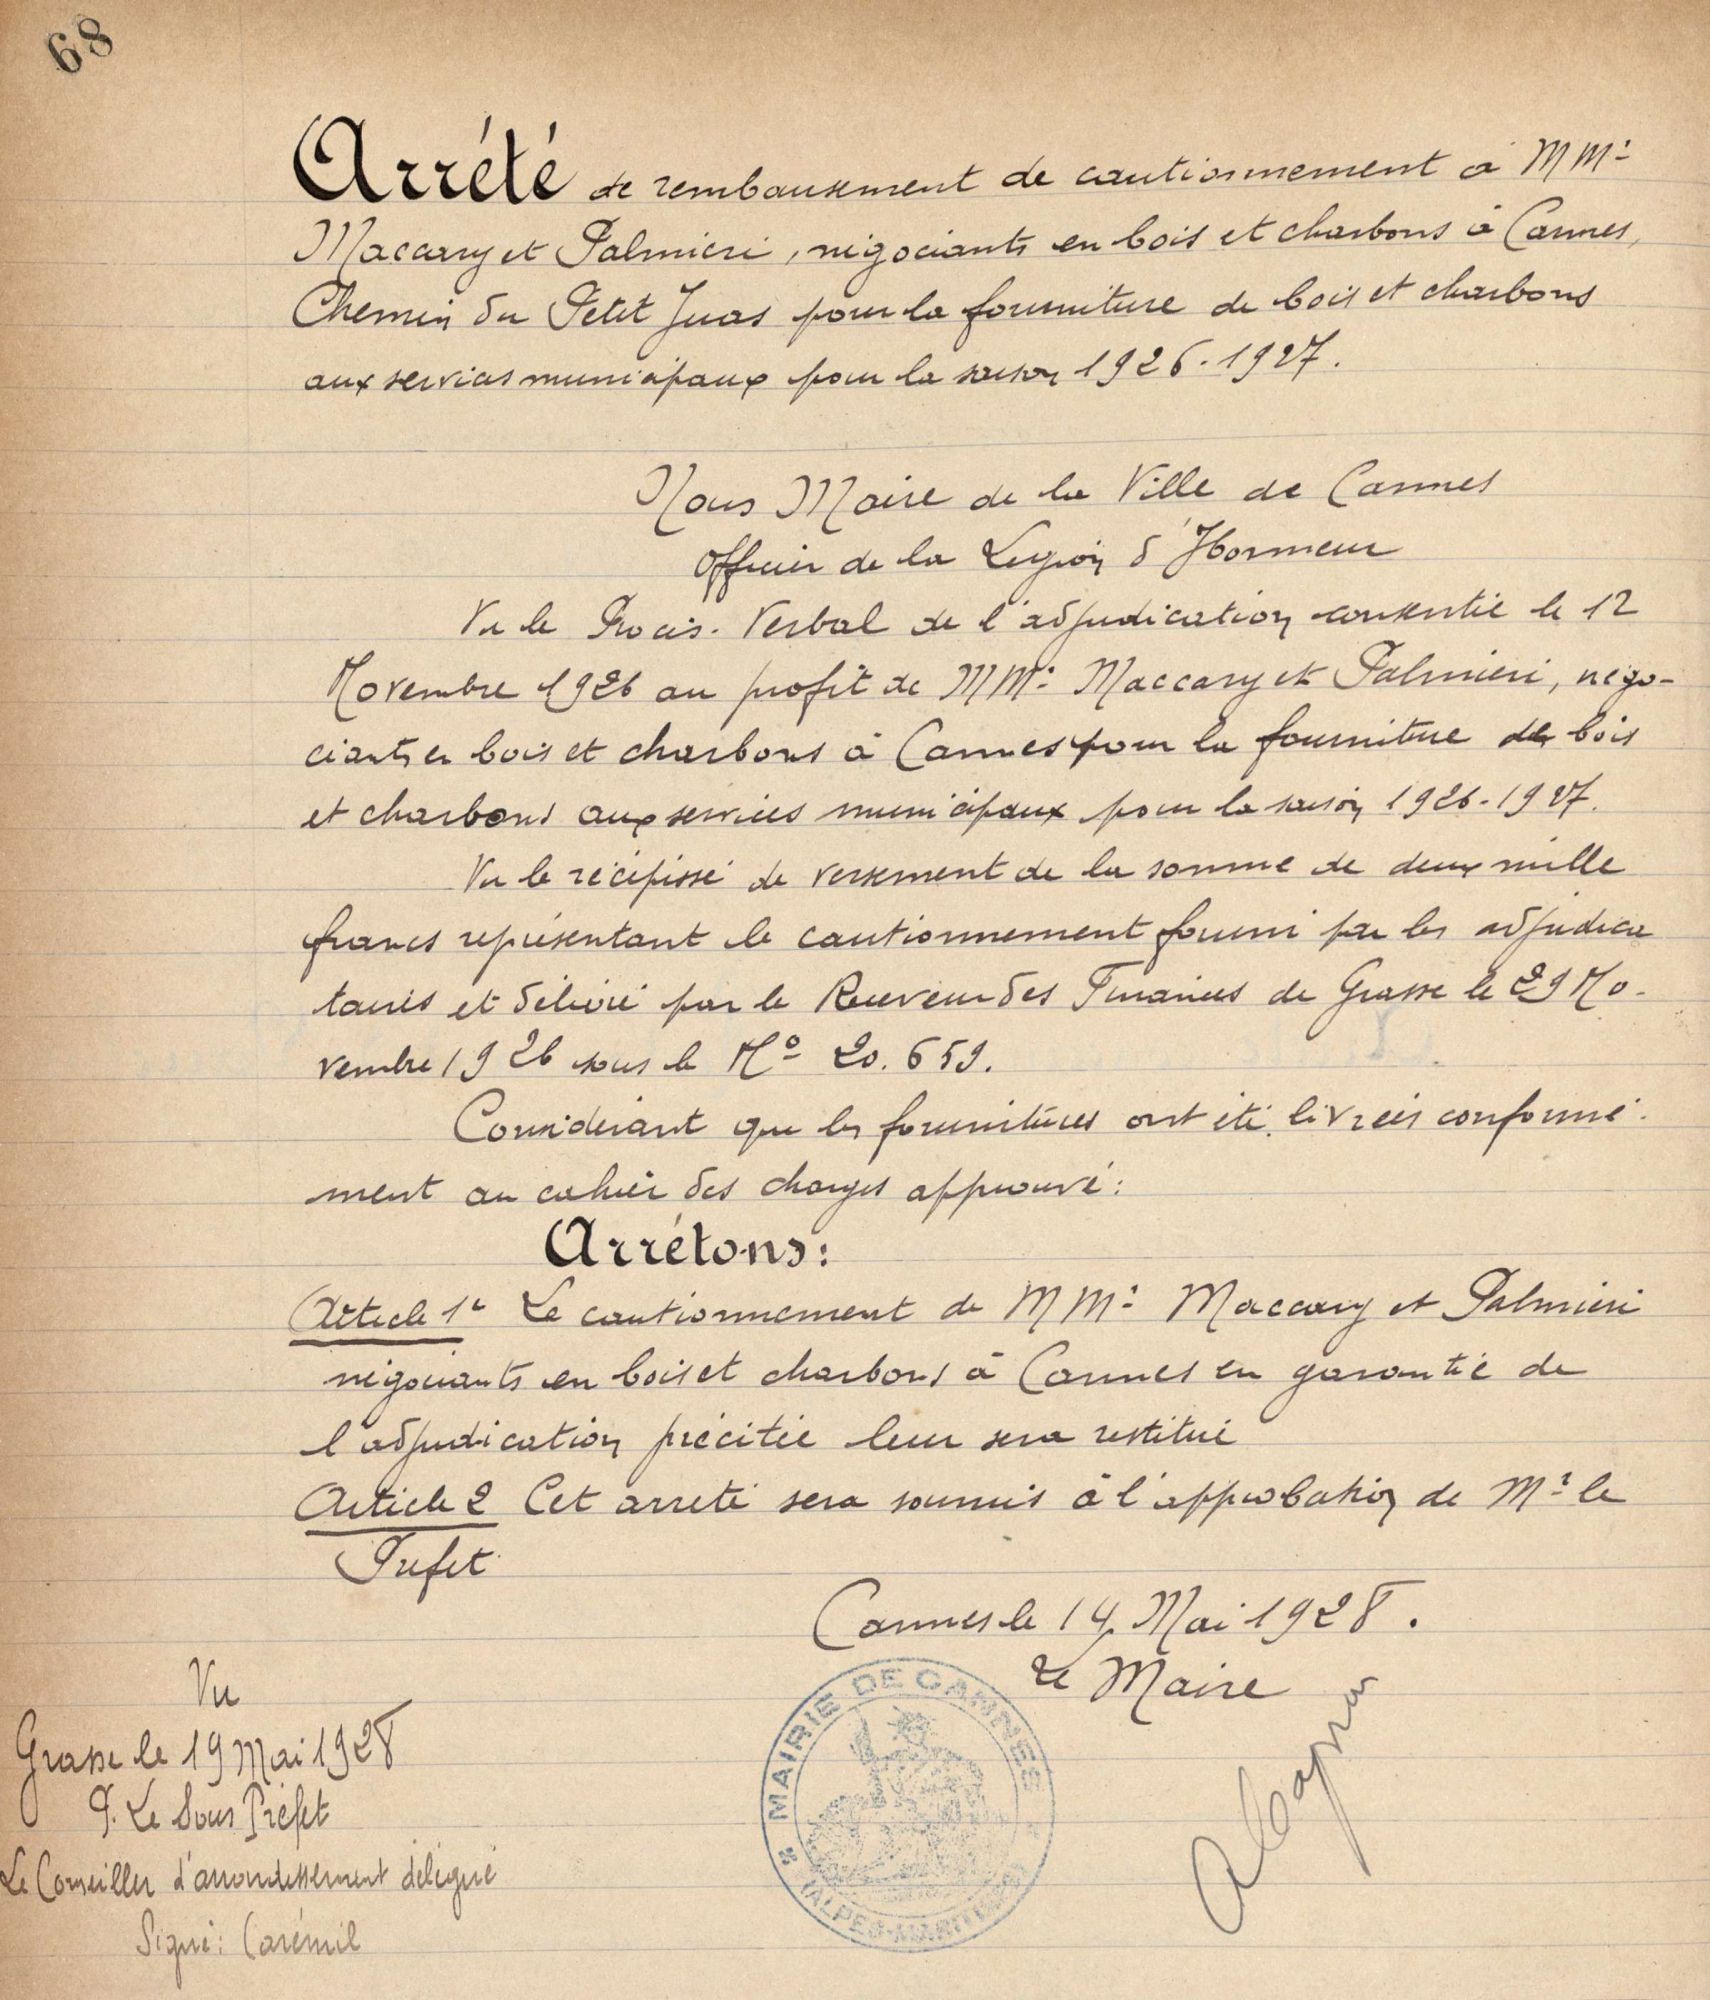 68
Arrêté de remboursement de cautionnement à MMrs
Maccary et Palmieri, négociants en bois et charbons à Cannes,
Chemin du Petit Juas pour la fourniture de bois et charbons
aux services municipaux pour la saison 1926-1927.
Nous Maire de la Ville de Cannes
Officier de la Légion d'Honneur
Vu le Procès-Verbal de l'adjudication consentie le 12
Novembre 1926 au profit de MMrs Maccary et Palmieri, négo-
ciants en bois et charbons à Cannes pour la fourniture de bois
et charbons aux services municipaux pour la saison 1926-1927.
Vu le récépissé de versement de la somme de deux mille
francs représentant le cautionnement fourni par les adjudica
taires et délivré par le Receveur des Finances de Grasse le 29 No-
vembre 1926 sous le No 20.659.
Considérant que les fournitures ont été livrées conformé-
ment au cahier des charges approuvé:
Arrêtons:
Article 1er Le cautionnement de MMrs Maccary et Palmieri
négociants en bois et charbons à Cannes en garantie de
l'adjudication précitée leur sera restitué
Article 2 Cet arrêté sera soumis à l'approbation de Mr le
Préfet
Cannes le 14 Mai 1928.
Le Maire
MAIRIE DE CANNES
(ALPES-MARITIMES)
Vu
Grasse le 19 Mai 1928
P. Le Sous Préfet
Le Conseiller d'arrondissement délégué
Signé: